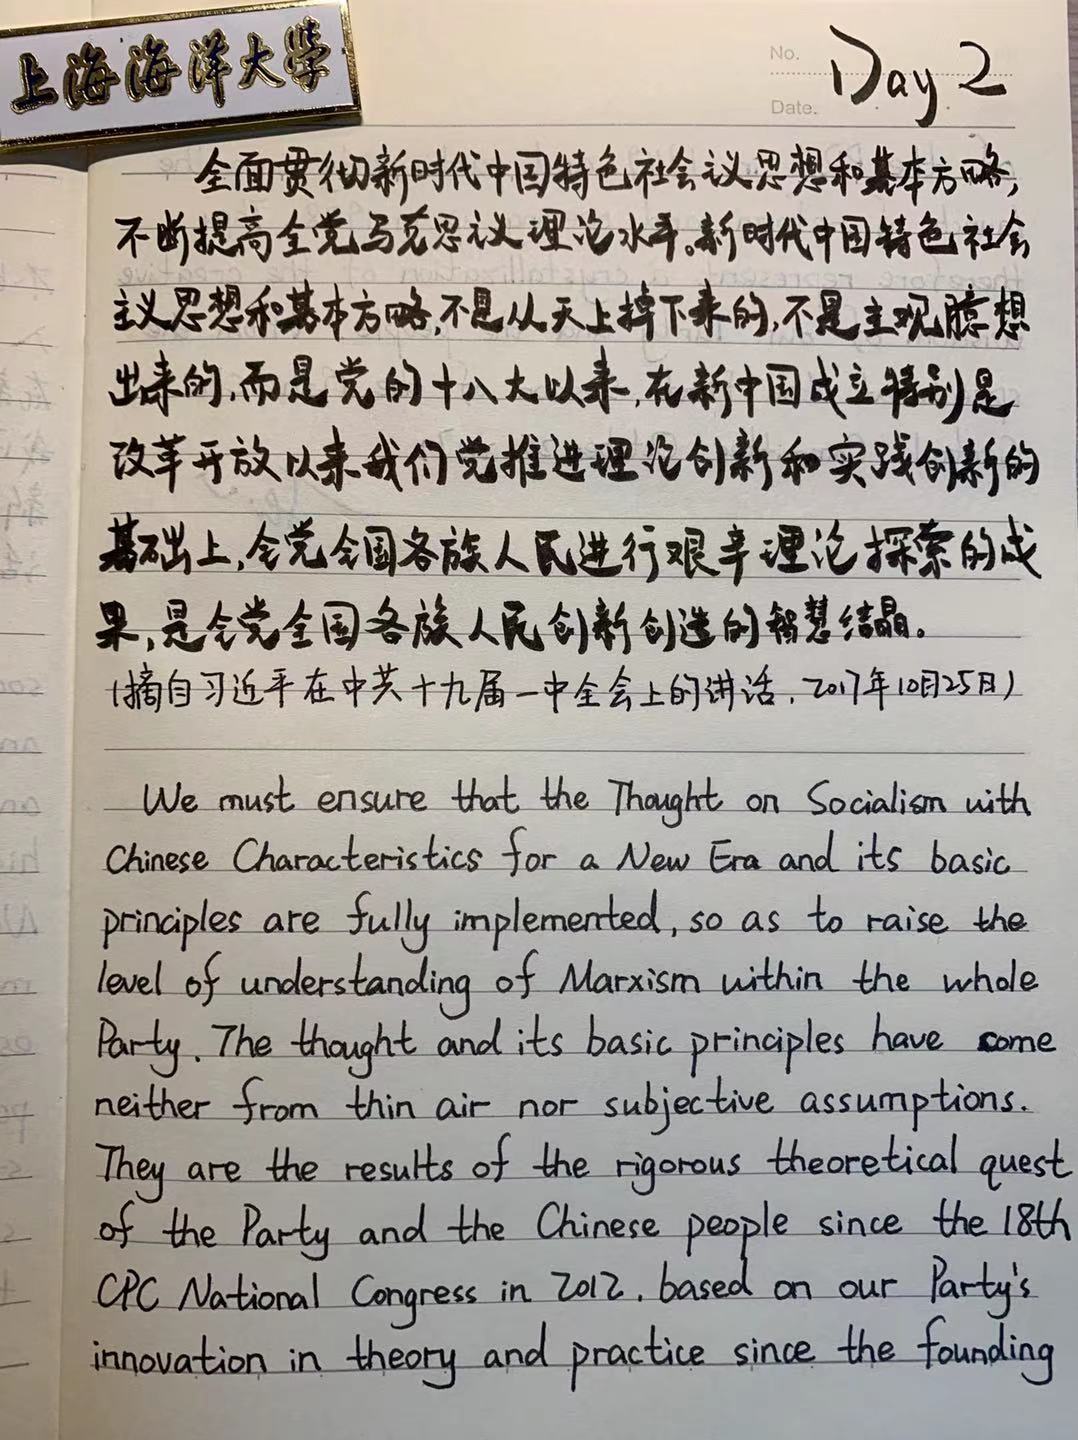 上海海洋大学
No.
Day 2
Date.
全面贯彻新时代中国特色社会主义思想和基本方略,
不断提高全党马克思主义理论水平。新时代中国特色社会
主义思想和基本方略,不是从天上掉下来的,不是主观臆想
出来的,而是党的十八大以来,在新中国成立特别是
改革开放以来我们党推进理论创新和实践创新的
基础上,全党全国各族人民进行艰辛理论探索的成
果,是全党全国各族人民创新创造的智慧结晶。
(摘自习近平在中共十九届一中全会上的讲话,2017年10月25日)
We must ensure that the Thought on Socialism with
Chinese Characteristics for a New Era and its basic
principles are fully implemented, so as to raise the
level of understanding of Marxism within the whole
Party. The thought and its basic principles have come
neither from thin air nor subjective assumptions.
They are the results of the rigorous theoretical quest
of the Party and the Chinese people since the 18th
CPC National Congress in 2012, based on our Party's
innovation in theory and practice since the founding